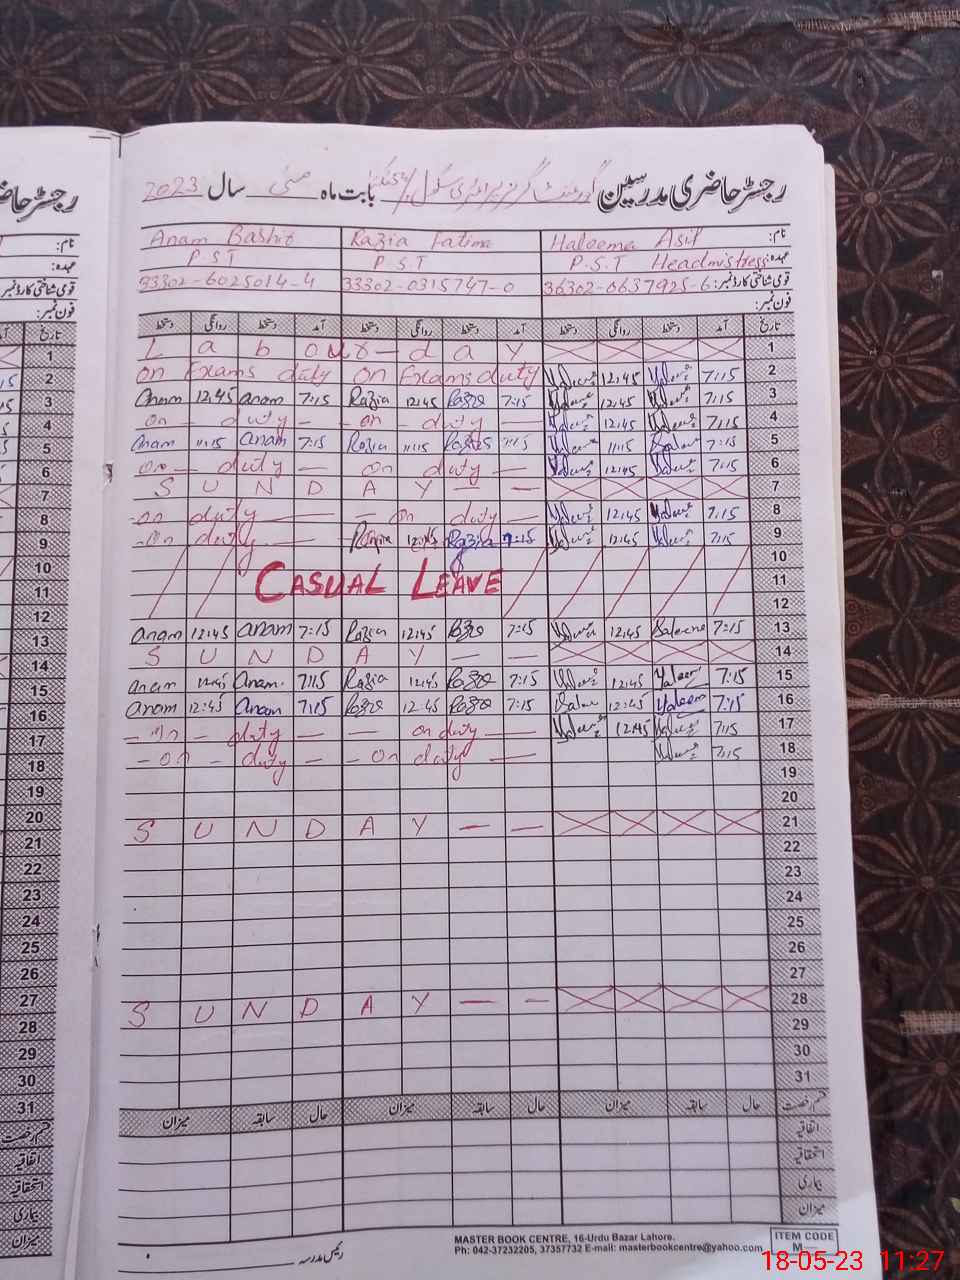 رجسٹر حاضری مدرسین گورنمنٹ گرلز پرائمری سکول بابت ماہ مئی سال 2023
نام: Haleema Asif Razia Fatima Anam Bashir
عہدہ: P.S.T Headmistress P.S.T P.S.T
قومی شناختی کارڈ نمبر: 36302-0637925-6 33302-0315747-0 33302-6025014-4
فون نمبر:
تاریخ آمد دستخط روانگی دستخط آمد دستخط روانگی دستخط آمد دستخط روانگی دستخط
Labour-day 1
on Exams duty on Exams duty 12:45 7:15 2
Anam 12:45 Anam 7:15 Razia 12:45 Razia 7:15 12:45 7:15 3
on - duty - on - duty - 12:45 7:15 4
Anam 11:15 Anam 7:15 Razia 11:15 Razia 7:15 11:15 7:15 5
on - duty - on duty - 12:45 7:15 6
S U N D A Y - - 7
on duty - on duty - 12:45 7:15 8
on duty - Razia 12:45 Razia 7:15 12:45 7:15 9
10
CASUAL LEAVE 11
12
Anam 12:45 Anam 7:15 Razia 12:45 7:15 12:45 Haleema 7:15 13
S U N D A Y - - 14
Anam 12:45 Anam. 7:15 Razia 12:45 7:15 12:45 7:15 15
Anam 12:45 Anam 7:15 12:45 7:15 12:45 7:15 16
- on - duty - - on duty - 12:45 7:15 17
- on - duty - - on duty - 7:15 18
19
20
S U N D A Y - - 21
22
23
24
25
26
27
S U N D A Y - - 28
29
30
31
قسم رخصت حال سابقہ میزان حال سابقہ میزان حال سابقہ میزان
اتفاقیہ
استحقاقیہ
بیماری
میزان
رئیس مدرسہ
MASTER BOOK CENTRE, 16-Urdu Bazar Lahore.
Ph: 042-37232205, 37357732 E-mail: masterbookcentre@yahoo.com
ITEM CODE
M—
18-05-23 11:27